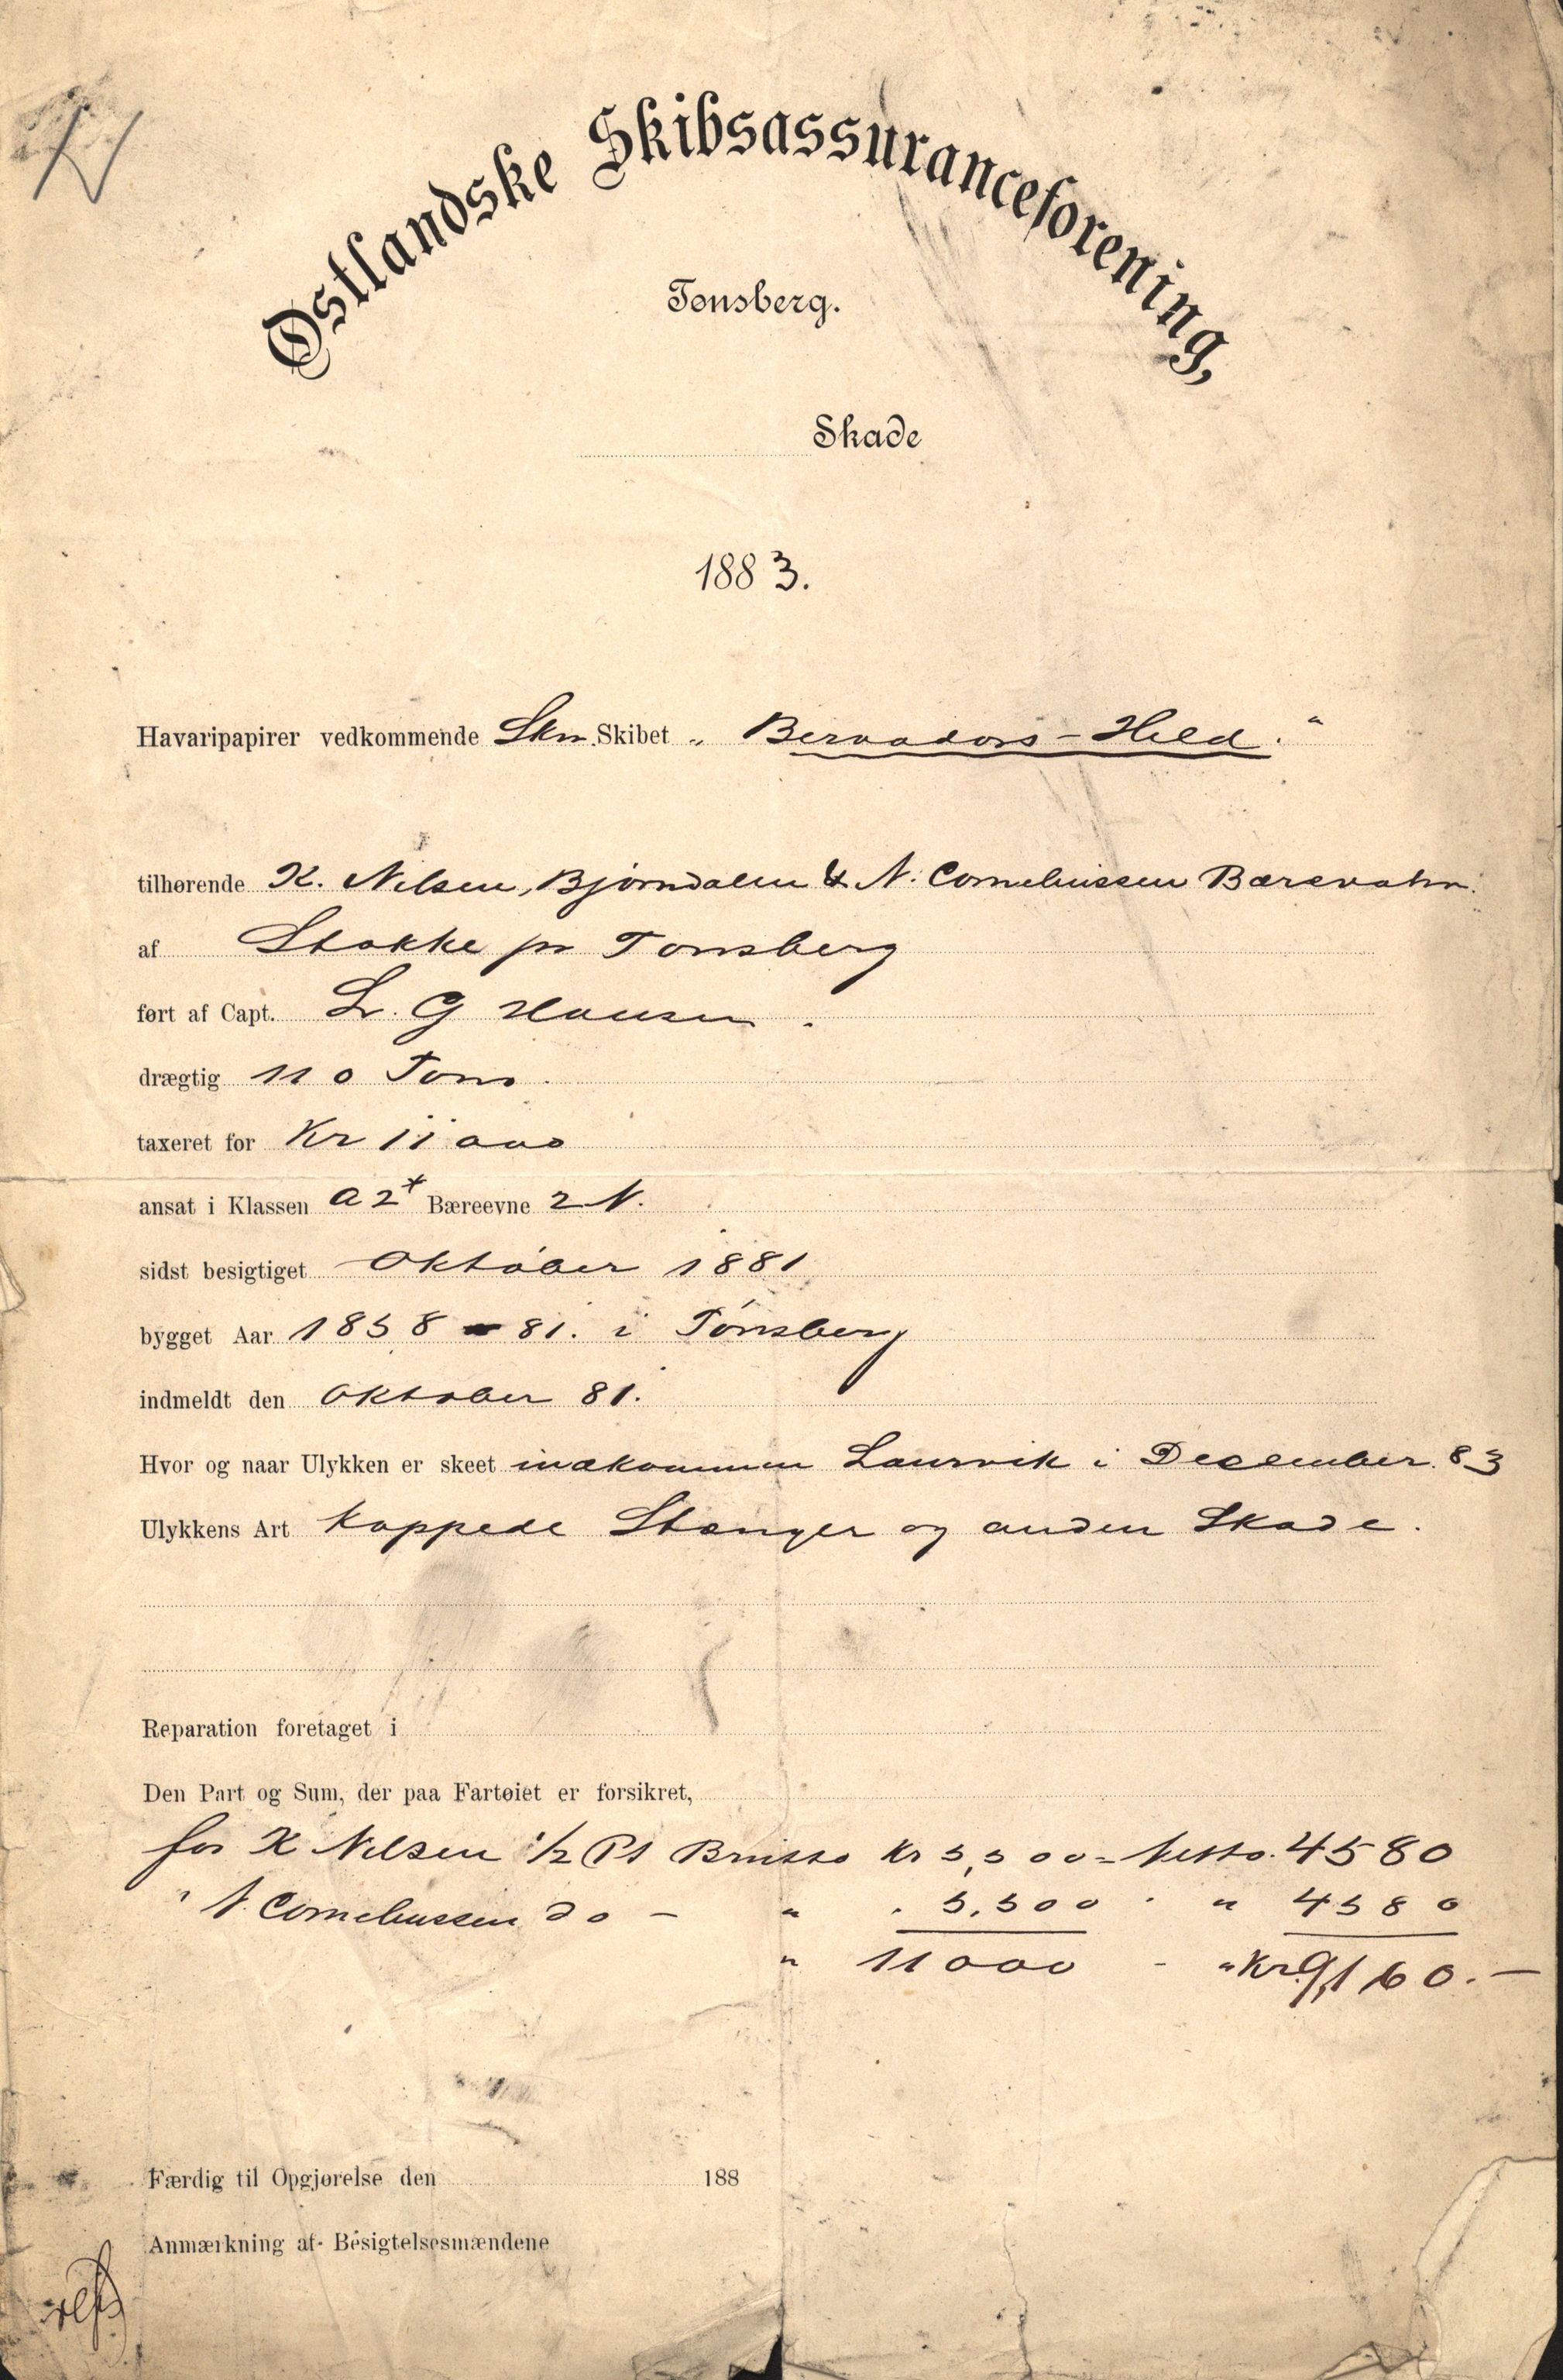 Østlandske Skibsassuranceforening,
Tønsberg.
Skade
1883.
Havaripapirer vedkommende Skn. Skibet „ Bervadors - Held. "
tilhørende K. Nilsen, Bjørndalen & N. Corneliussen Bærevahr.
af Stokke pr Tønsberg
ført af Capt. L. G Hansen.
drægtig 110 Tons.
taxeret for Kr 11000
ansat i Klassen A2* Bæreevne 2 N.
sidst besigtiget Oktober 1881
bygget Aar 1858 - 81. i Tønsberg
indmeldt den Oktober 81.
Hvor og naar Ulykken er skeet indkommen Laurvik i December 83
Ulykkens Art kappede Stænger og anden Skade.
Reparation foretaget i
Den Part og Sum, der paa Fartøiet er forsikret,
for K Nilsen 1/2 Pt Brutto Kr 5,500 = Netto. 4580
" N. Corneliussen do - " . 5.500 . " 4580
" 11000 - " Kr. 9,160. —
Færdig til Opgjørelse den 188
Anmærkning af Besigtelsesmændene